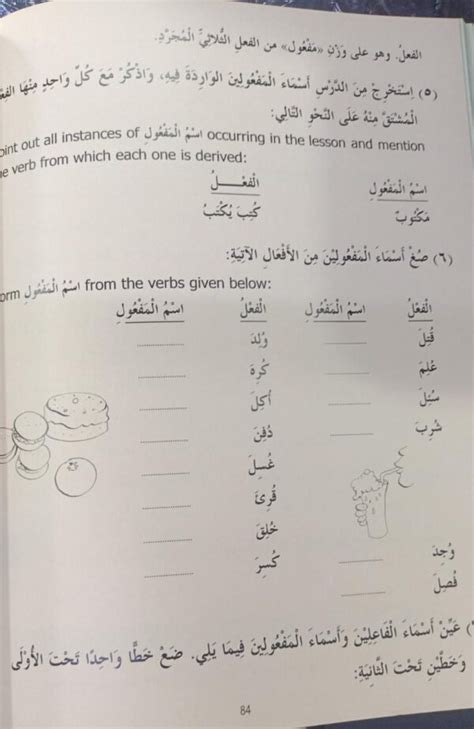 الفعلُ. وهو على وَزْنِ «مَفْعُول» من الفعلِ الثُّلاثِيِّ الْمُجَرَّدِ.
(٥) اِسْتَخْرِجْ مِنَ الدَّرْسِ أَسْمَاءَ الْمَفْعُولِينَ الوَارِدَةَ فِيهِ، وَاذْكُرْ مَعَ كُلِّ وَاحِدٍ مِنْهَا الفِع
الْمُشْتَقَّ مِنْهُ عَلَى النَّحْوِ التَّالِي:
oint out all instances of اسْمُ الْمَفْعُولِ occurring in the lesson and mention
e verb from which each one is derived:
اسْمُ الْمَفْعُولِ الْفَعْــــلُ
مَكْتُوبٌ كُتِبَ يُكْتَبُ
(٦) صُغْ أَسْمَاءَ الْمَفْعُولِيْنَ مِنَ الأَفْعَالِ الآتِيَةِ:
orm اسْمُ الْمَفْعُولِ from the verbs given below:
الْفَعْلُ اسْمُ الْمَفْعُولِ الْفَعْلُ اسْمُ الْمَفْعُولِ
قُتِلَ وُلِدَ
عُلِمَ كُرِهَ
سُئِلَ أُكِلَ
شُرِبَ دُفِنَ
غُسِلَ
قُرِئَ
خُلِقَ
وُجِدَ كُسِرَ
فُصِلَ
) عَيِّنْ أَسْمَاءَ الْفَاعِلِيْنَ وَأَسْمَاءَ الْمَفْعُولِينَ فِيمَا يَلِي. ضَعْ خَطًّا وَاحِدًا تَحْتَ الأُوْلَى
وَخَطَّيْنِ تَحْتَ الثَّانِيَةِ:
84